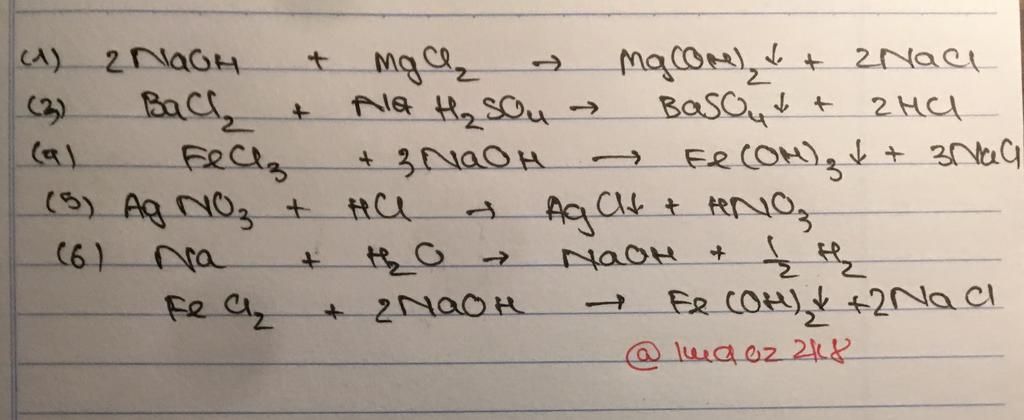 (1) 2NaOH + MgCl₂ → Mg(OH)₂↓ + 2NaCl
(3) BaCl₂ + H₂SO₄ → BaSO₄↓ + 2HCl
(4) FeCl₃ + 3NaOH → Fe(OH)₃↓ + 3NaCl
(5) AgNO₃ + HCl → AgCl↓ + HNO₃
(6) Na + H₂O → NaOH + 1/2 H₂
FeCl₂ + 2NaOH → Fe(OH)₂↓ + 2NaCl